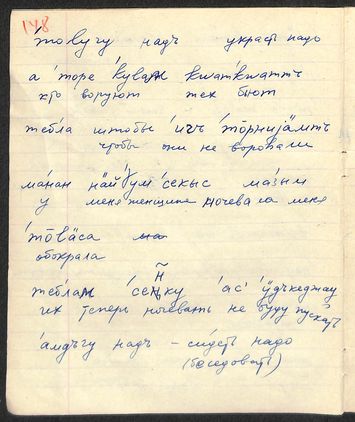 148
'товугу надъ украсть надо
а 'торе 'кувам кматкматтъ
кто воруют тех бьют
тебла штобы 'ичъ 'то̄рнијамтъ
чтобы они не воровали
манан най 'ум 'секыс мазым
у меня женщина ночевала меня
'то̄вӓса
обокрала
теблам 'сеӊку 'ас' 'ӱдъкеджау
их теперь ночевать не буду пускать
'амдъгу надъ – сидеть надо
(беседовать)